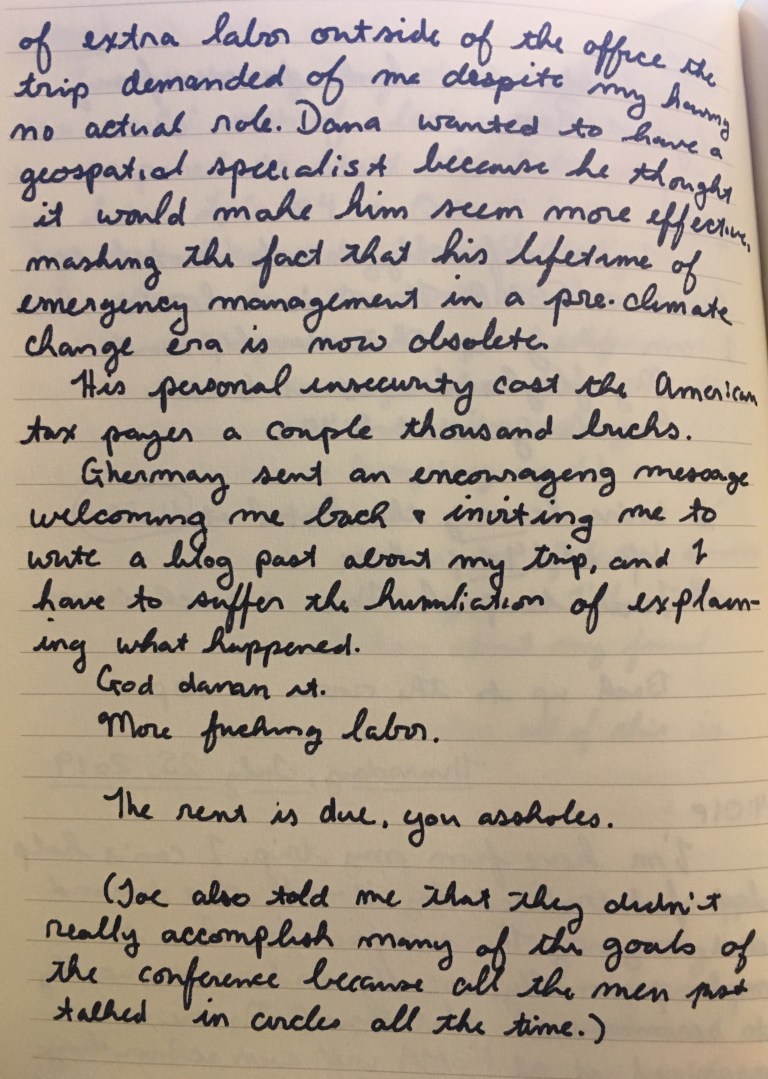 of extra labor outside of the office the
trip demanded of me despite my having
no actual role. Dana wanted to have a
geospatial specialist because he thought
it would make him seem more effective,
masking the fact that his lifetime of
emergency management in a pre-climate
change era is now obsolete.
His personal insecurity cost the American
tax payer a couple thousand bucks.
Ghermay sent an encouraging message
welcoming me back & inviting me to
write a blog post about my trip, and I
have to suffer the humiliation of explain-
ing what happened.
God damn it.
More fucking labor.
The rent is due, you assholes.
(Joe also told me that they didn't
really accomplish many of the goals of
the conference because all the men just
talked in circles all the time.)
Thursday, July 25, 2019